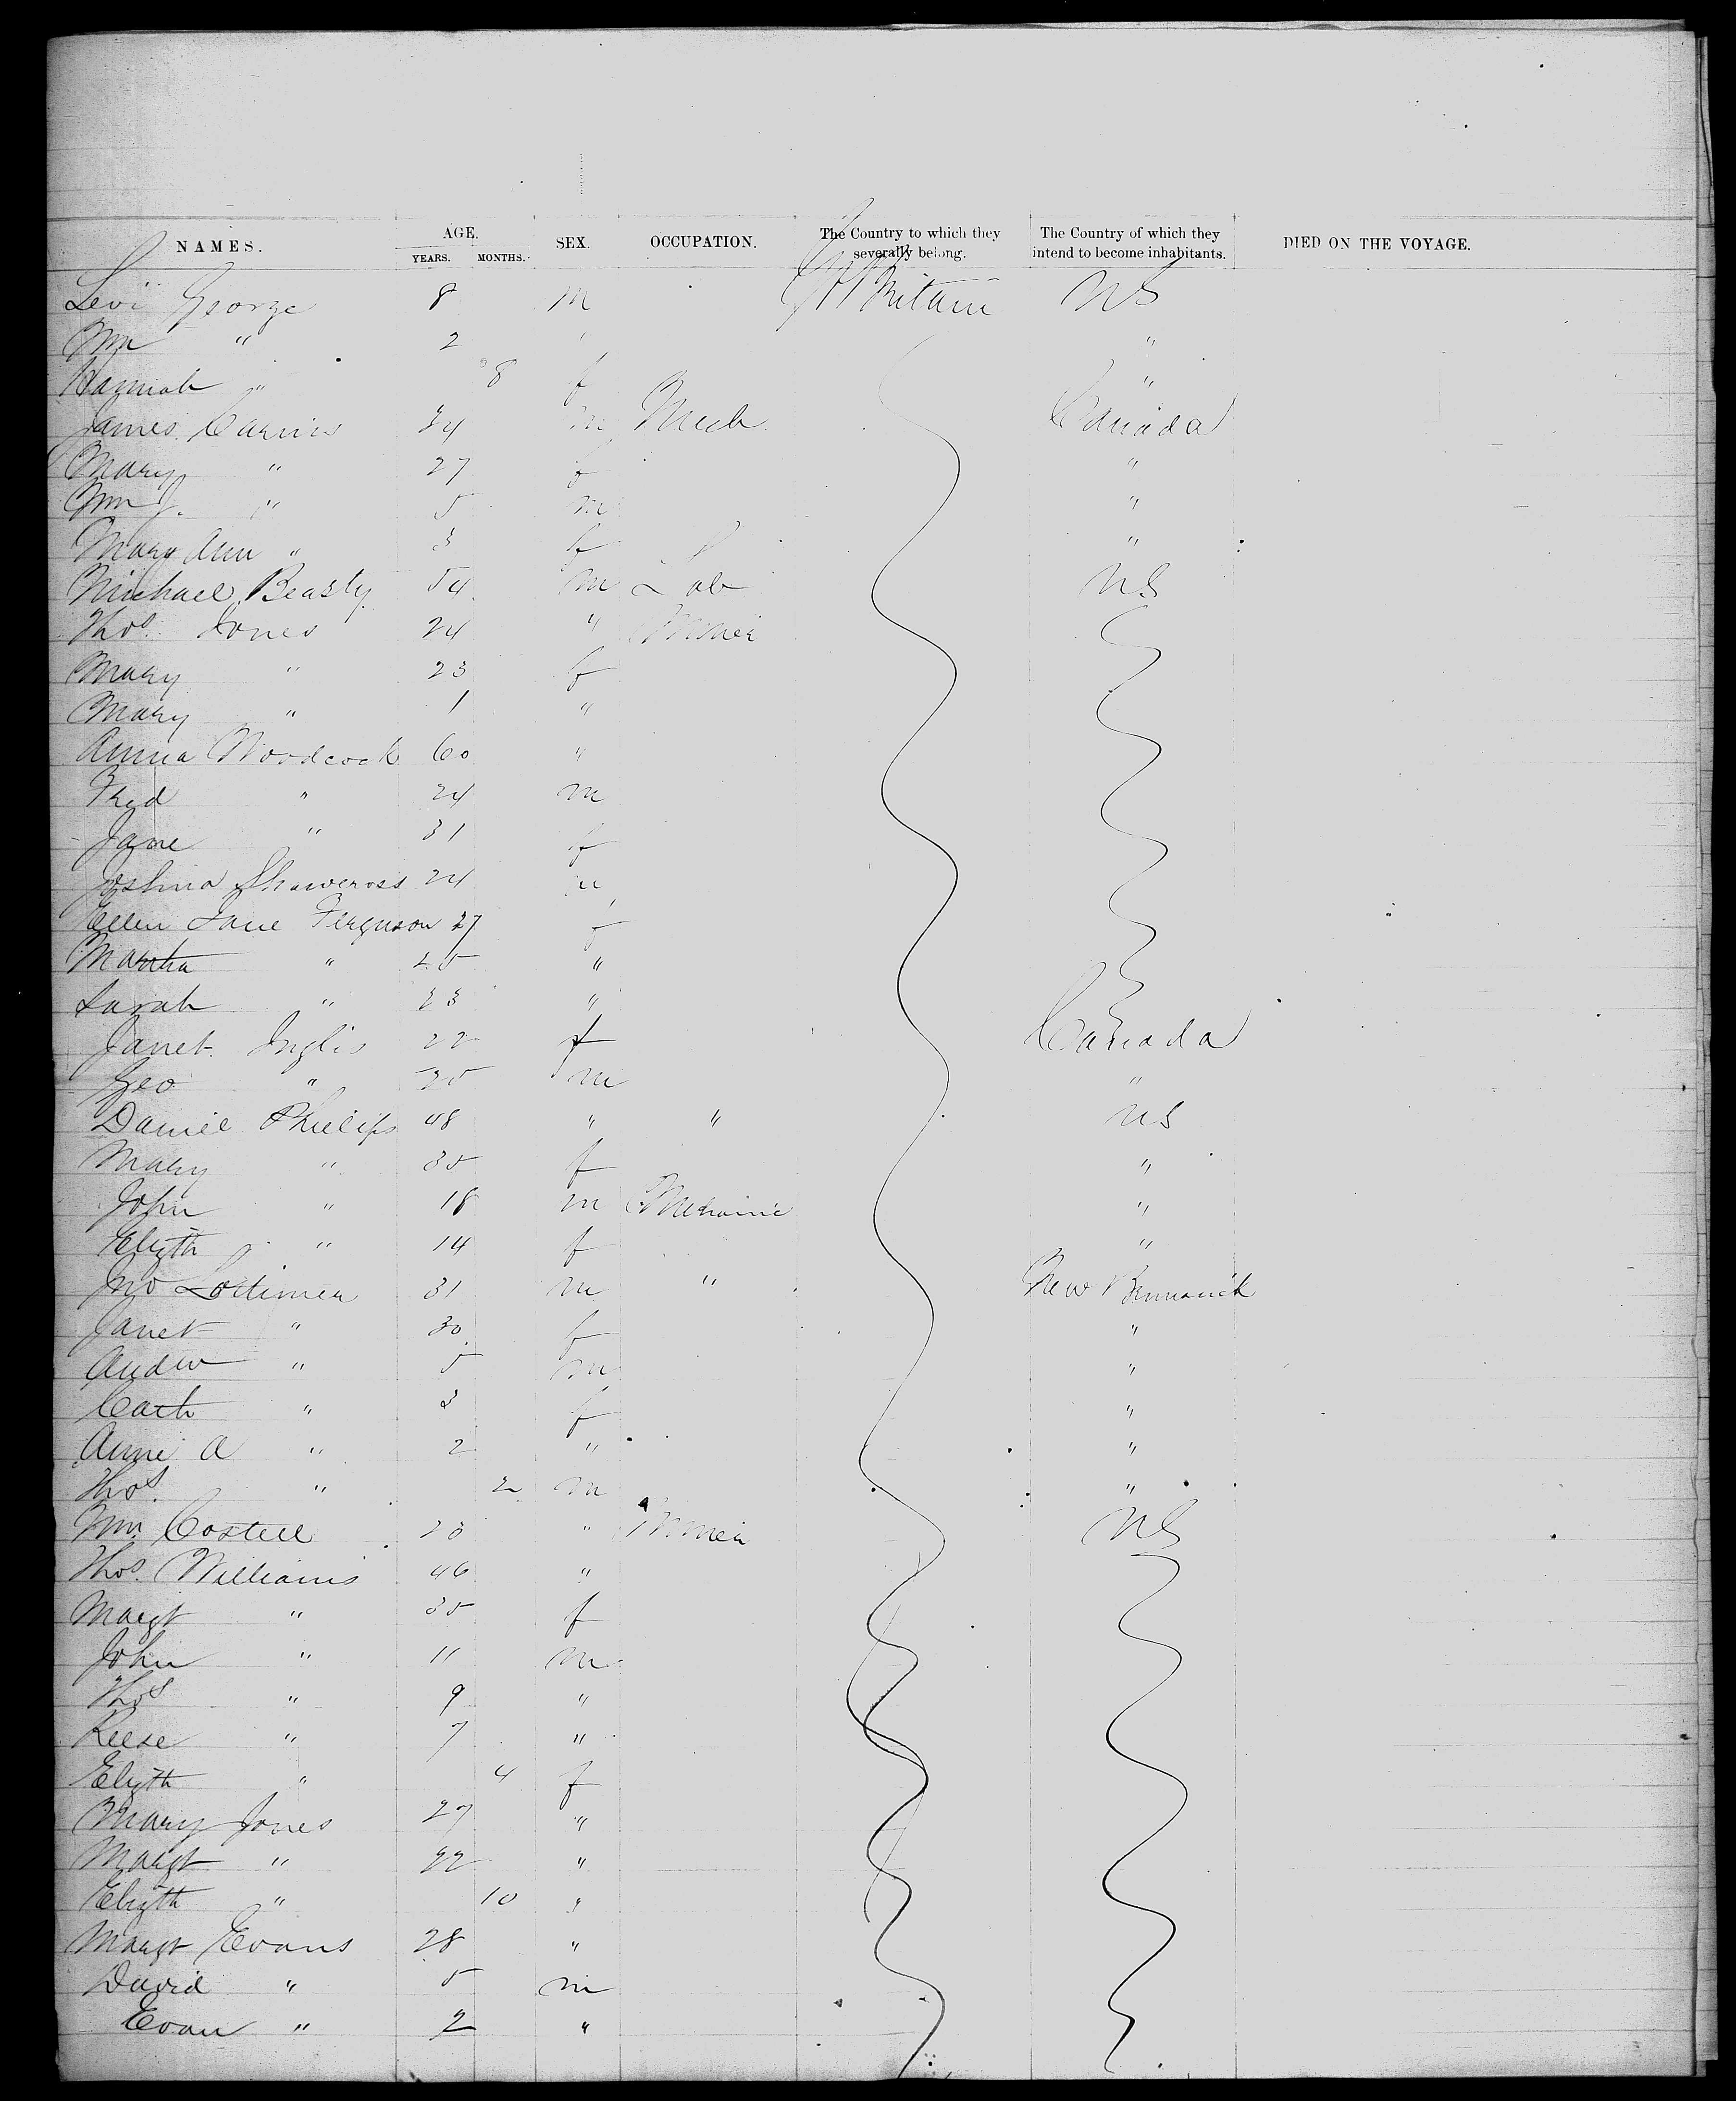 NAMES. AGE. YEARS. MONTHS. SEX. OCCUPATION. The Country to which they severally belong. The Country of which they intend to become inhabitants. DIED ON THE VOYAGE.
Levi George 8 m Gt Britain NS
Wm " 2 " "
Hannah " 8 f "
James 34 m Mech Canada
Mary " 27 f "
Wm J. " 5 m "
Mary Ann " 3 f "
Michael Beasty 54 m Lab NS
Thos. Jones 24 " Miner
Mary " 23 f
Mary " 1 "
Anna Woodcock 60 "
Fred " 24 m
Jane " 31 f
Joshua Shawcross 24 m
Ellen Jane Ferguson 27 f
Martha " "
Sarah " 23 "
Janet Inglis 22 f Canada
Geo " m "
Daniel Phillips 48 " " NS
Mary " 35 f "
John " 18 m Mechanic "
Elizth " 14 f "
Jno Lottimer 31 m " New Brunswick
Janet " 30 f "
Andw " 5 m "
Cath " 3 f "
Anne A " 2 " "
Thos. " 2 m "
Wm Costell 23 " Miner NS
Thos. Williams 46 "
Margt " 35 f
John " 11 m
Thos " 9 "
Reese " 7 "
Elizth " 4 f
Mary Jones 27 "
Margt " 22 "
Elizth " 10 "
Margt Evans 28 "
David " 5 m
Evan " 2 "